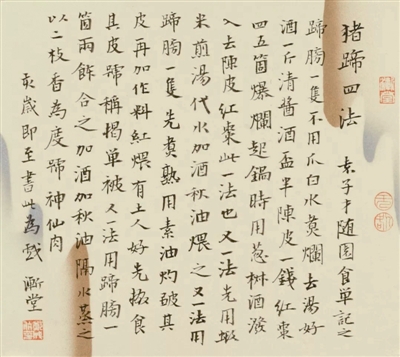 猪蹄四法 袁子才随園食單記之
蹄膀一隻不用爪白水煑爛去湯好
酒一斤清醬酒盃半陳皮一錢紅棗
四五箇煨爛起鍋時用葱椒酒潑
入去陳皮紅棗此一法也又一法先用蝦
米煎湯代水加酒秋油煨之又一法用
蹄膀一隻先煑熟用素油灼皺其
皮再加作料紅煨有土人好先掇食
其皮號稱揭單被又一法用蹄膀一
箇兩鉢合之加酒加秋油隔水蒸之
以二枝香為度號神仙肉
亥歲即至書此為戲 堂